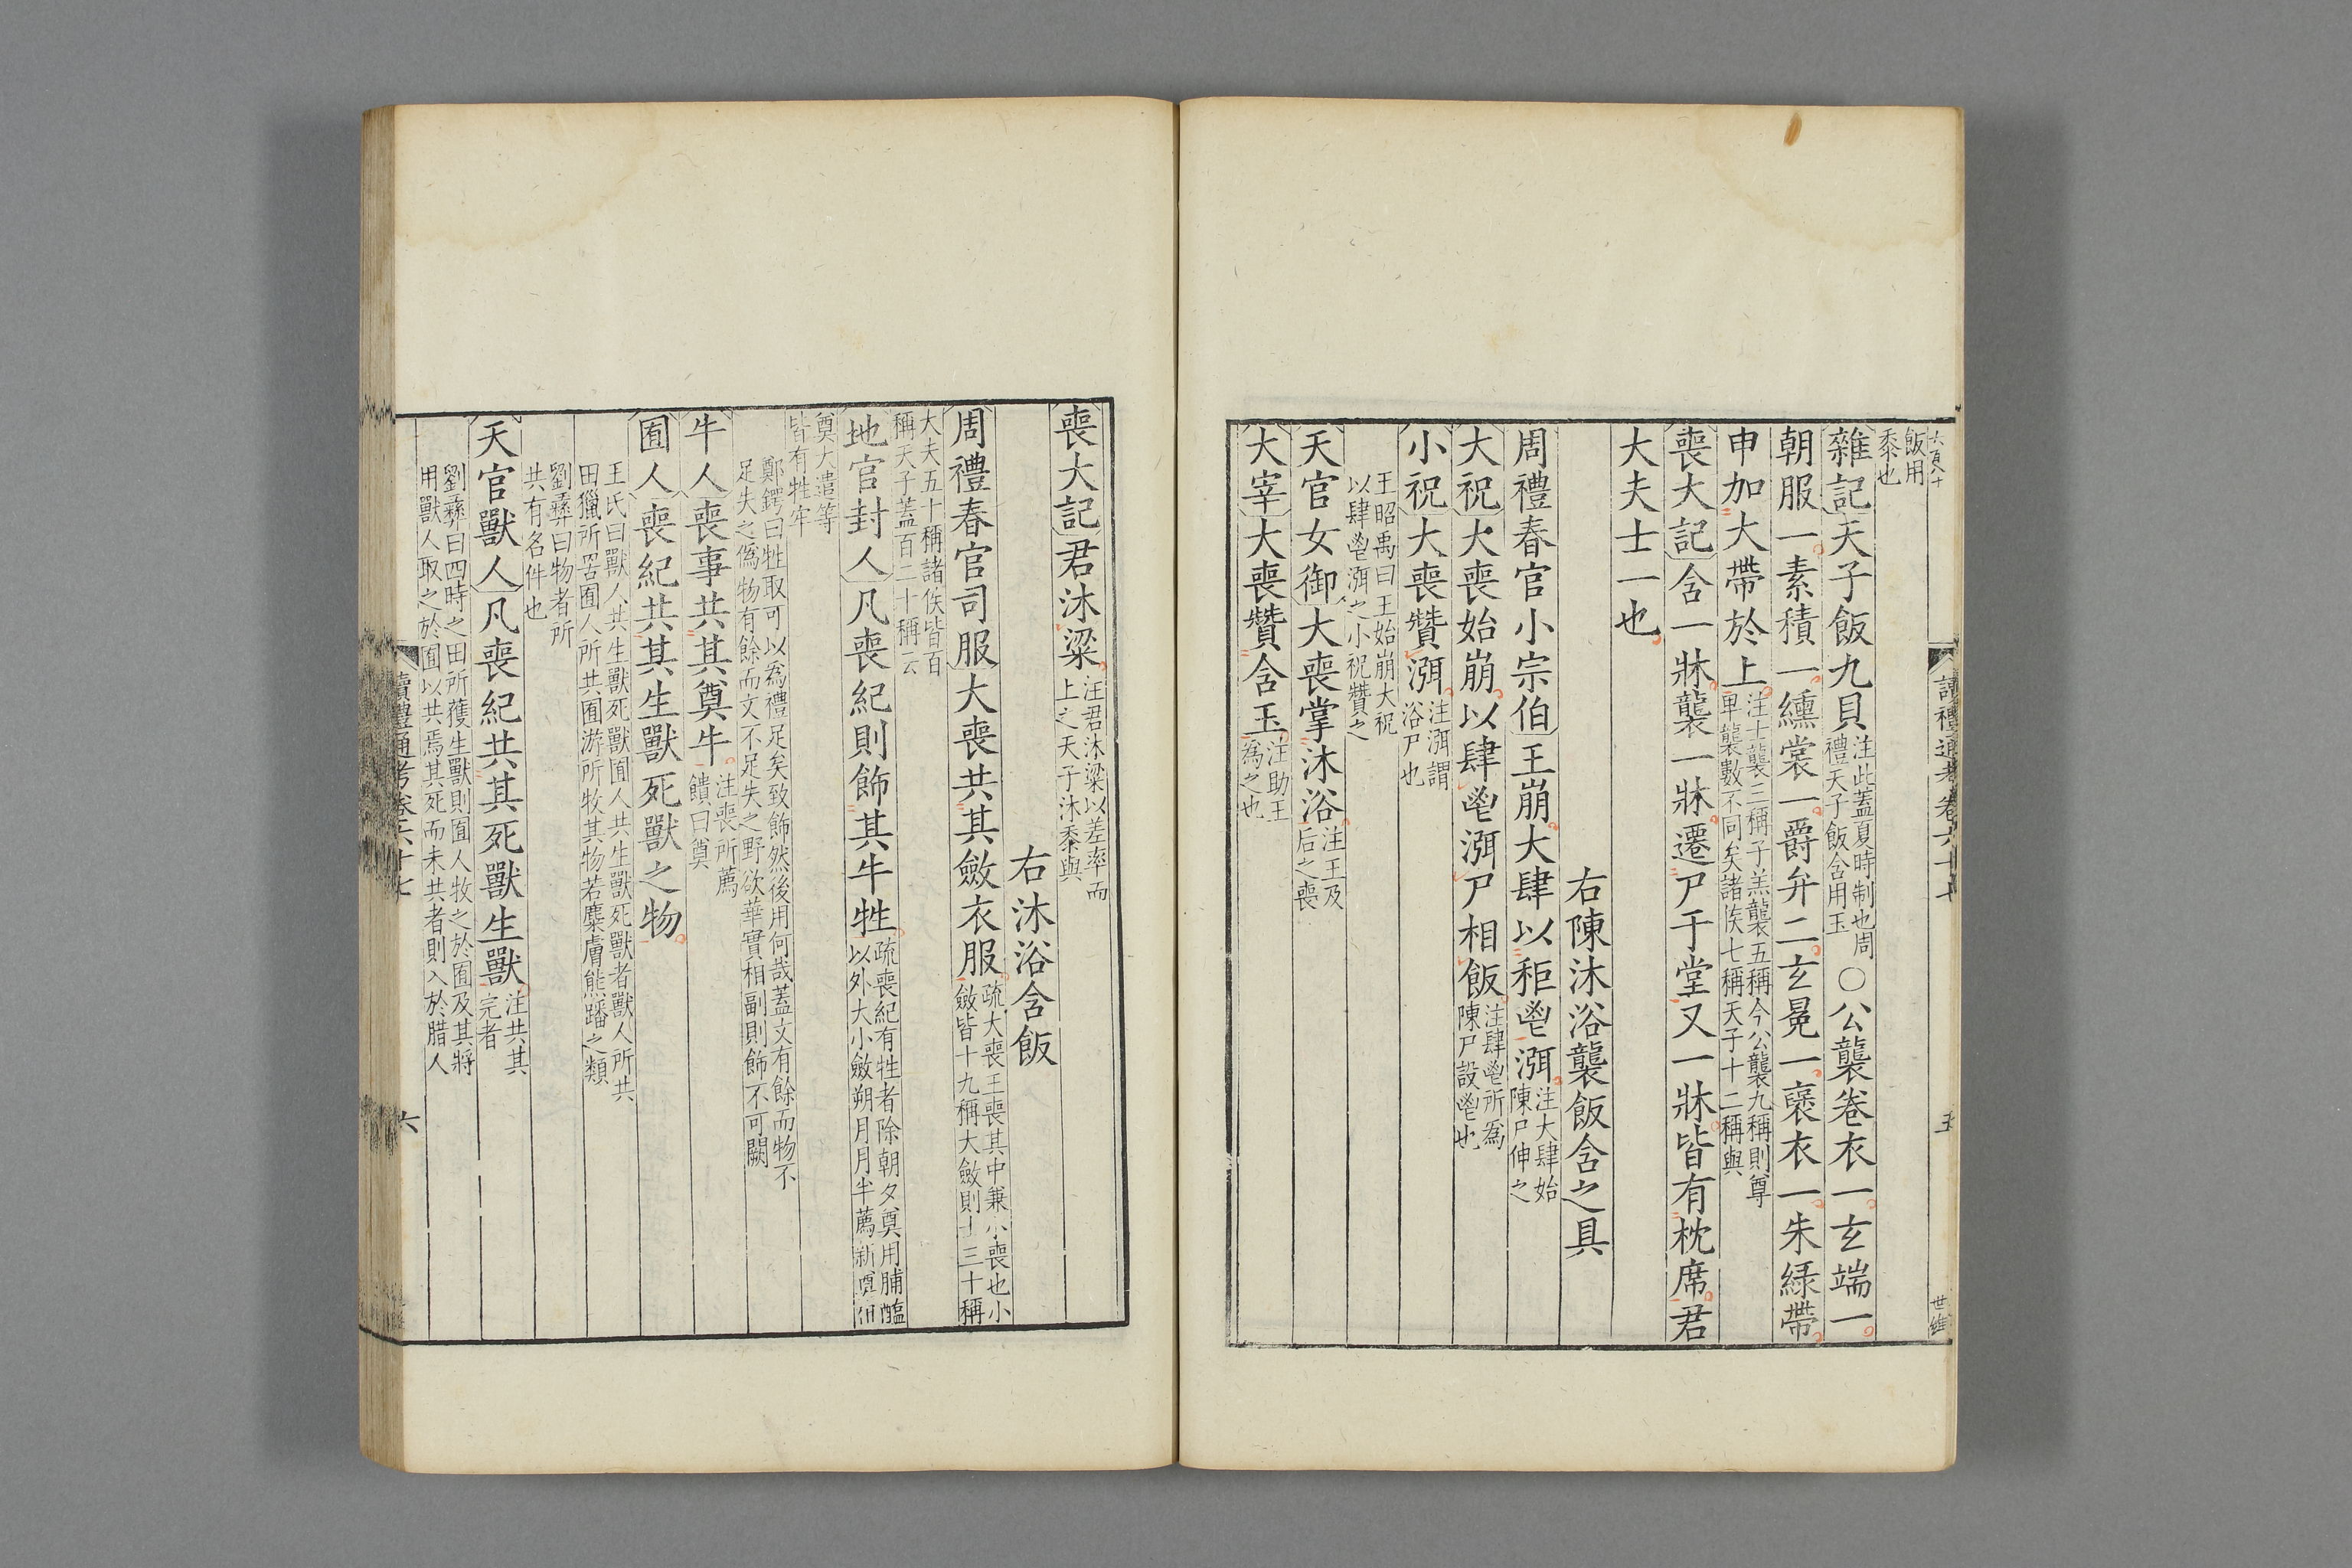 飯用
黍也
雜記天子飯九貝注此蓋夏時制也周禮天子飯含用玉○公襲卷衣一玄端一
朝服一素積一纁裳一爵弁二玄冕一襃衣一朱綠帶
申加大帶於上注士襲二稱子羔襲五稱今公襲九稱則尊卑襲數不同矣諸侯七稱天子十二稱與
喪大記含一牀襲一牀遷尸于堂又一牀皆有枕席君
大夫士一也
右陳沐浴襲飯含之具
周禮春官小宗伯王崩大肆以秬鬯渳注大肆始陳尸伸之
大祝大喪始崩以肆鬯渳尸相飯注肆鬯所爲陳尸設鬯也
小祝大喪贊渳注渳謂浴尸也
王昭禹曰王始崩大祝
以肆鬯渳之小祝贊之
天官女御大喪掌沐浴注王及后之喪
大宰大喪贊含玉注助王爲之也
讀禮通考卷六十七
五
喪大記君沐粱注君沐粱以差率而上之天子沐黍與
右沐浴含飯
周禮春官司服大喪共其斂衣服疏大喪王喪其中兼小喪也小斂皆十九稱大斂則士三十稱
大夫五十稱諸侯皆百
稱天子蓋百二十稱云
地官封人凡喪紀則飾其牛牲疏喪紀有牲者除朝夕奠用脯醢以外大小斂朔月月半薦新奠祖
奠大遣等
皆有牲牢
鄭鍔曰牲取可以爲禮足矣致飾然後用何哉蓋文有餘而物不
足失之僞物有餘而文不足失之野欲華實相副則飾不可闕
牛人喪事共其奠牛注喪所薦饋曰奠
囿人喪紀共其生獸死獸之物
王氏曰獸人共生獸死獸囿人共生獸死獸者獸人所共
田獵所罟囿人所共囿游所牧其物若麋膚熊蹯之類
劉彝曰物者所
共有名件也
天官獸人凡喪紀共其死獸生獸注共其完者
劉彝曰四時之田所獲生獸則囿人牧之於囿及其將
用獸人取之於囿以共焉其死而未共者則入於腊人
讀禮通考卷六十七
六